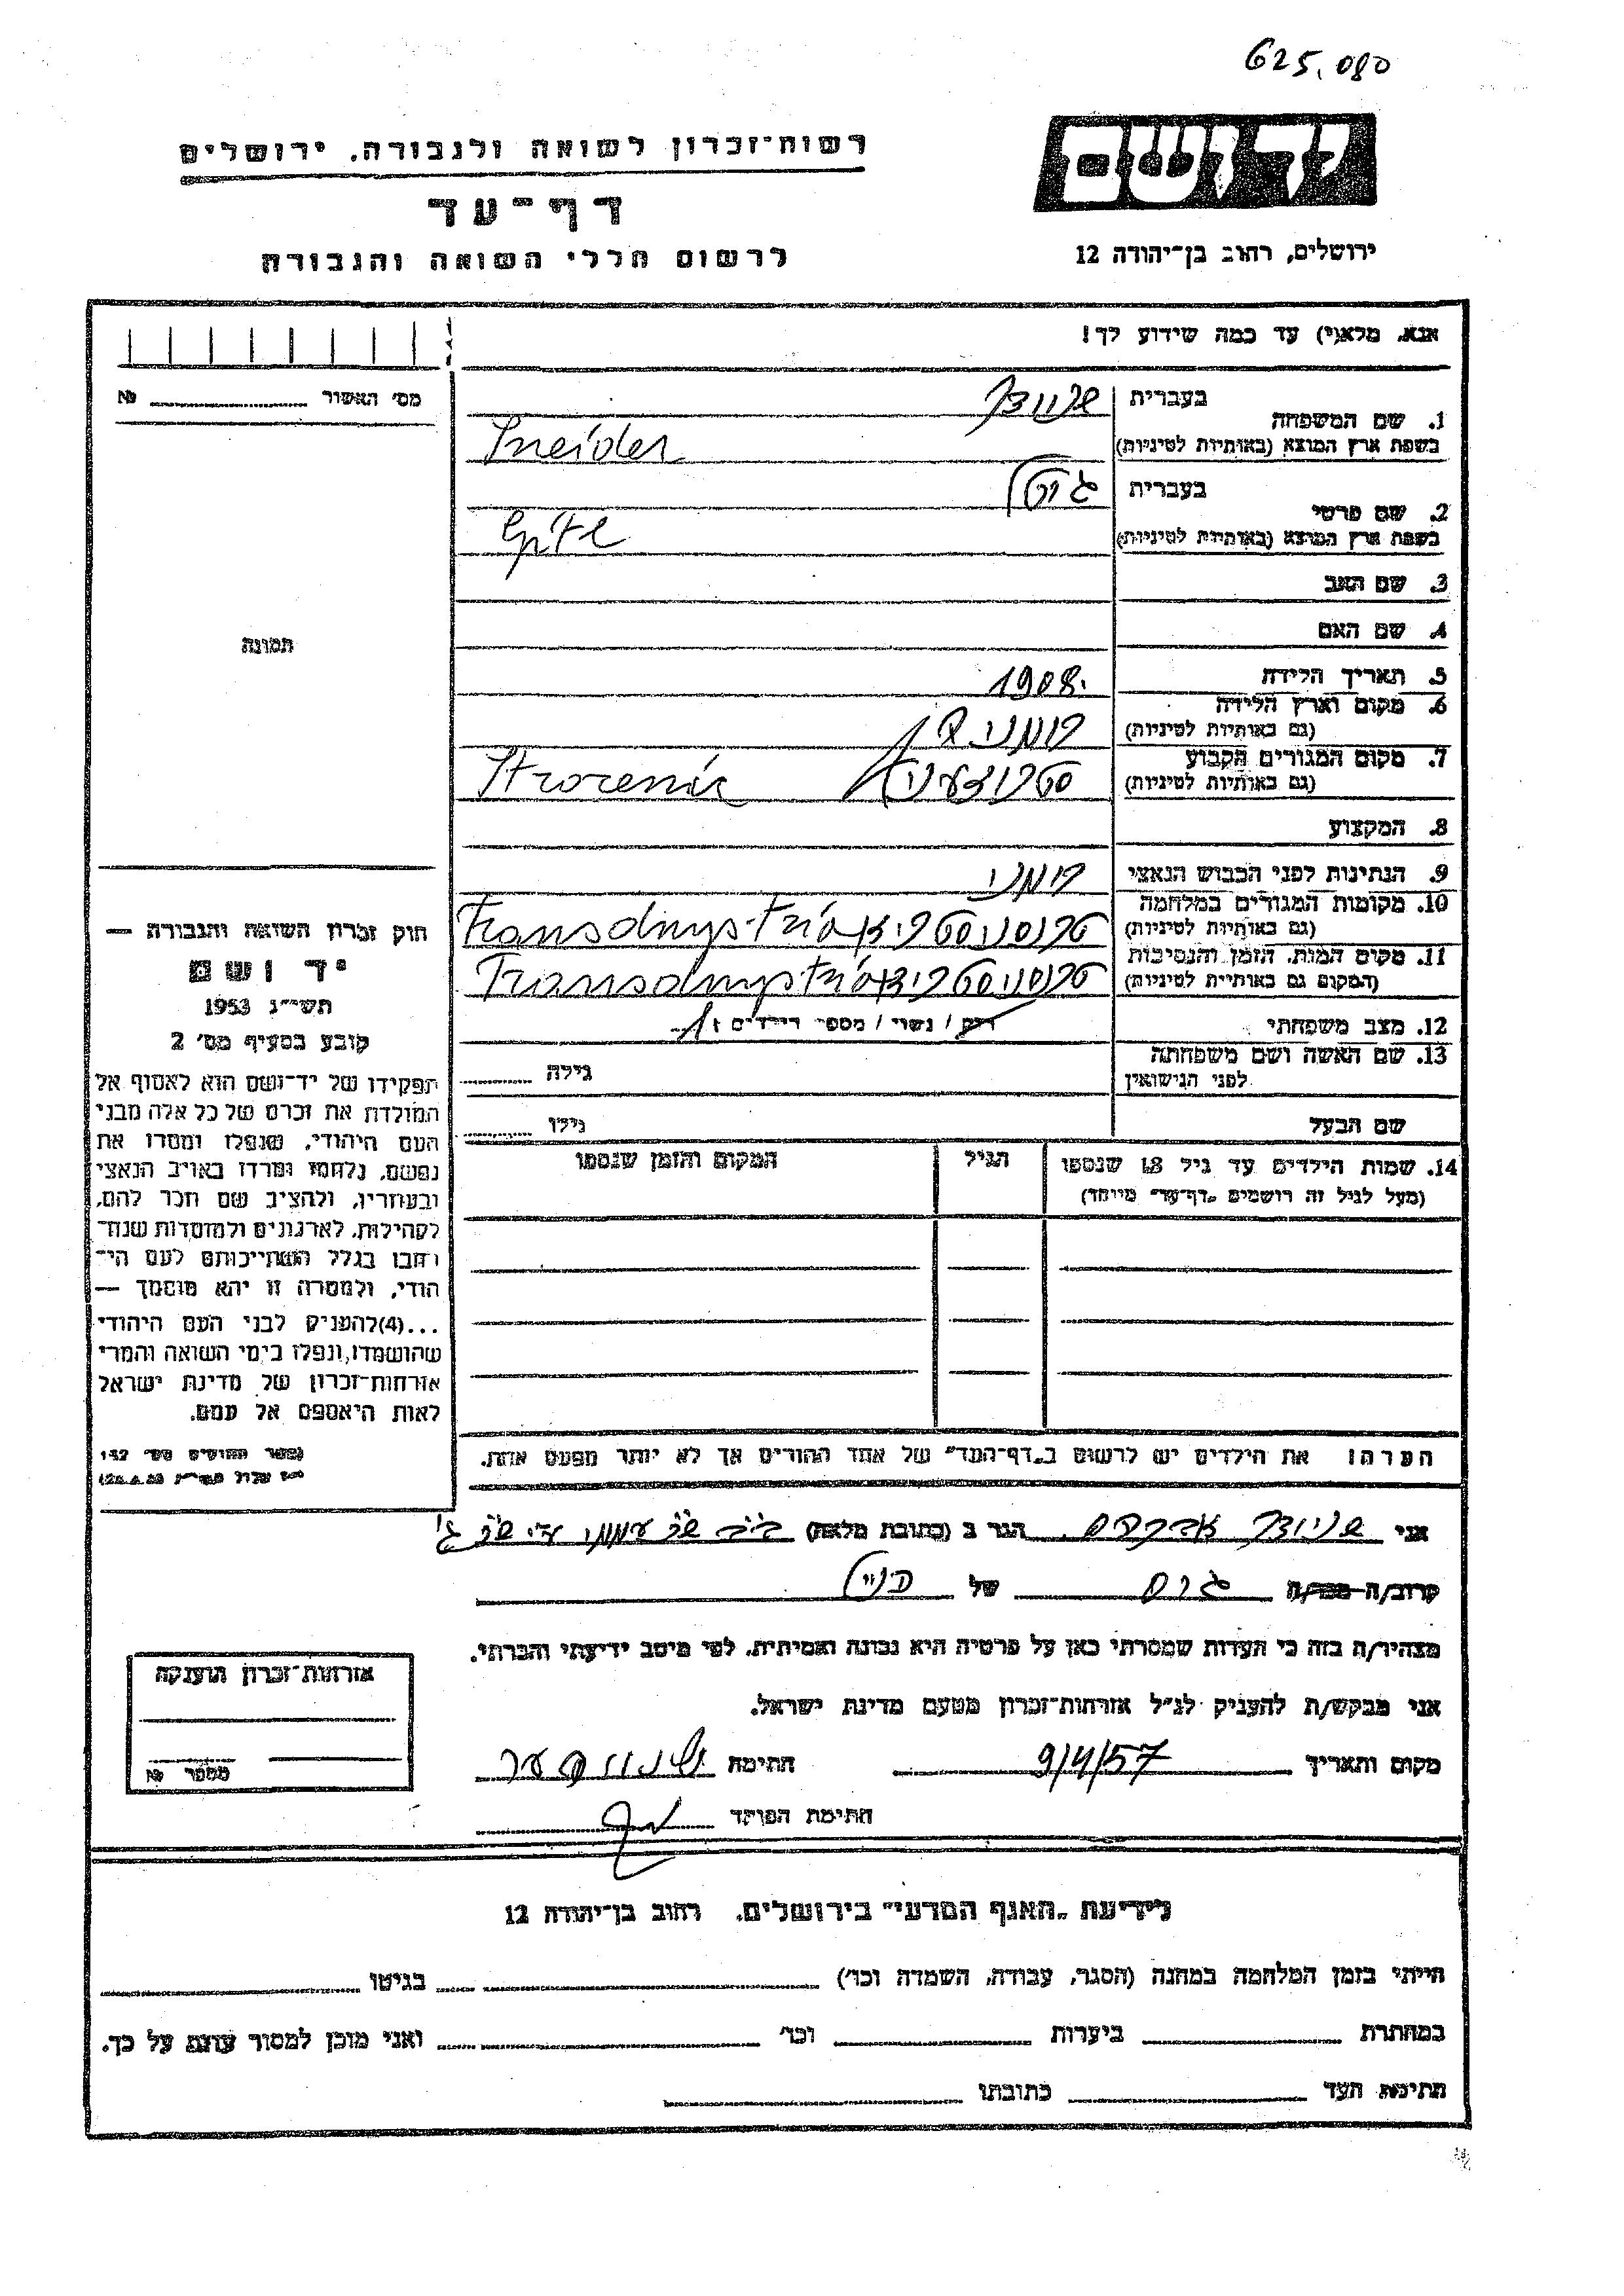 625.080
יד ושם
רשות־זכרון לשואה ולגבורה, ירושלים
דף־עד
לרשום חללי השואה והגבורה
ירושלים, רחוב בן־יהודה 12
אנא, מלא(י) עד כמה שידוע לך!
מס׳ האשור № 
1. שם המשפחה
בעברית
בשפת ארץ המוצא (באותיות לטיניות)
Sneider
2. שם פרטי
בעברית גיטל
בשפת ארץ המוצא (באותיות לטיניות)
Gitl
3. שם האב
4. שם האם
תמונה
5. תאריך הלידה 1908.
6. מקום וארץ הלידה
(גם באותיות לטיניות)
7. מקום המגורים הקבוע
(גם באותיות לטיניות)
Strorenic
8. המקצוע
9. הנתינות לפני הכבוש הנאצי רומני
10. מקומות המגורים במלחמה
(גם באותיות לטיניות)
Transdnystria
11. מקום המות, הזמן והנסיבות
(המקום גם באותיות לטיניות)
Transdnystria
12. מצב משפחתי רוק / נשוי / מספר הילדים 1
13. שם האשה ושם משפחתה
לפני הנישואין
גילה
שם הבעל גילו
14. שמות הילדים עד גיל 18 שנספו
(מעל לגיל זה רושמים „דף־עד״ מיוחד)
הגיל
המקום והזמן שנספו
הערה: את הילדים יש לרשום ב„דף־העד״ של אחד ההורים אך לא יותר מפעם אחת.
חוק זכרון השואה והגבורה —
יד ושם
תשי״ג 1953
קובע בסעיף מס׳ 2
תפקידו של יד־ושם הוא לאסוף אל
המולדת את זכרם של כל אלה מבני
העם היהודי, שנפלו ומסרו את
נפשם, נלחמו ומרדו באויב הנאצי
ובעוזריו, ולהציב שם וזכר להם,
לקהילות, לארגונים ולמוסדות שנח־
רבו בגלל השתייכותם לעם הי־
הודי, ולמטרה זו יהא מוסמך —
...(4) להעניק לבני העם היהודי
שהושמדו, ונפלו בימי השואה והמרי
אזרחות־זכרון של מדינת ישראל
לאות היאספם אל עמם.
אני שניידר אברהם הגר ב (כתובת מלאה)
קרוב/ה מכר/ה של
מצהיר/ה בזה כי העדות שמסרתי כאן על פרטיה היא נכונה ואמיתית, לפי מיטב ידיעתי והכרתי.
אני מבקש/ת להעניק לנ״ל אזרחות־זכרון מטעם מדינת ישראל.
מקום ותאריך 9/4/57 חתימה
חתימת הפוקד
אזרחות־זכרון הוענקה
מספר №
לידיעת „האגף המדעי״ בירושלים, רחוב בן־יהודה 12
הייתי בזמן המלחמה במחנה (הסגר, עבודה, השמדה וכו׳) בגיטו
במחתרת ביערות וכו׳ ואני מוכן למסור עדות על כך.
חתימת העד כתובתו